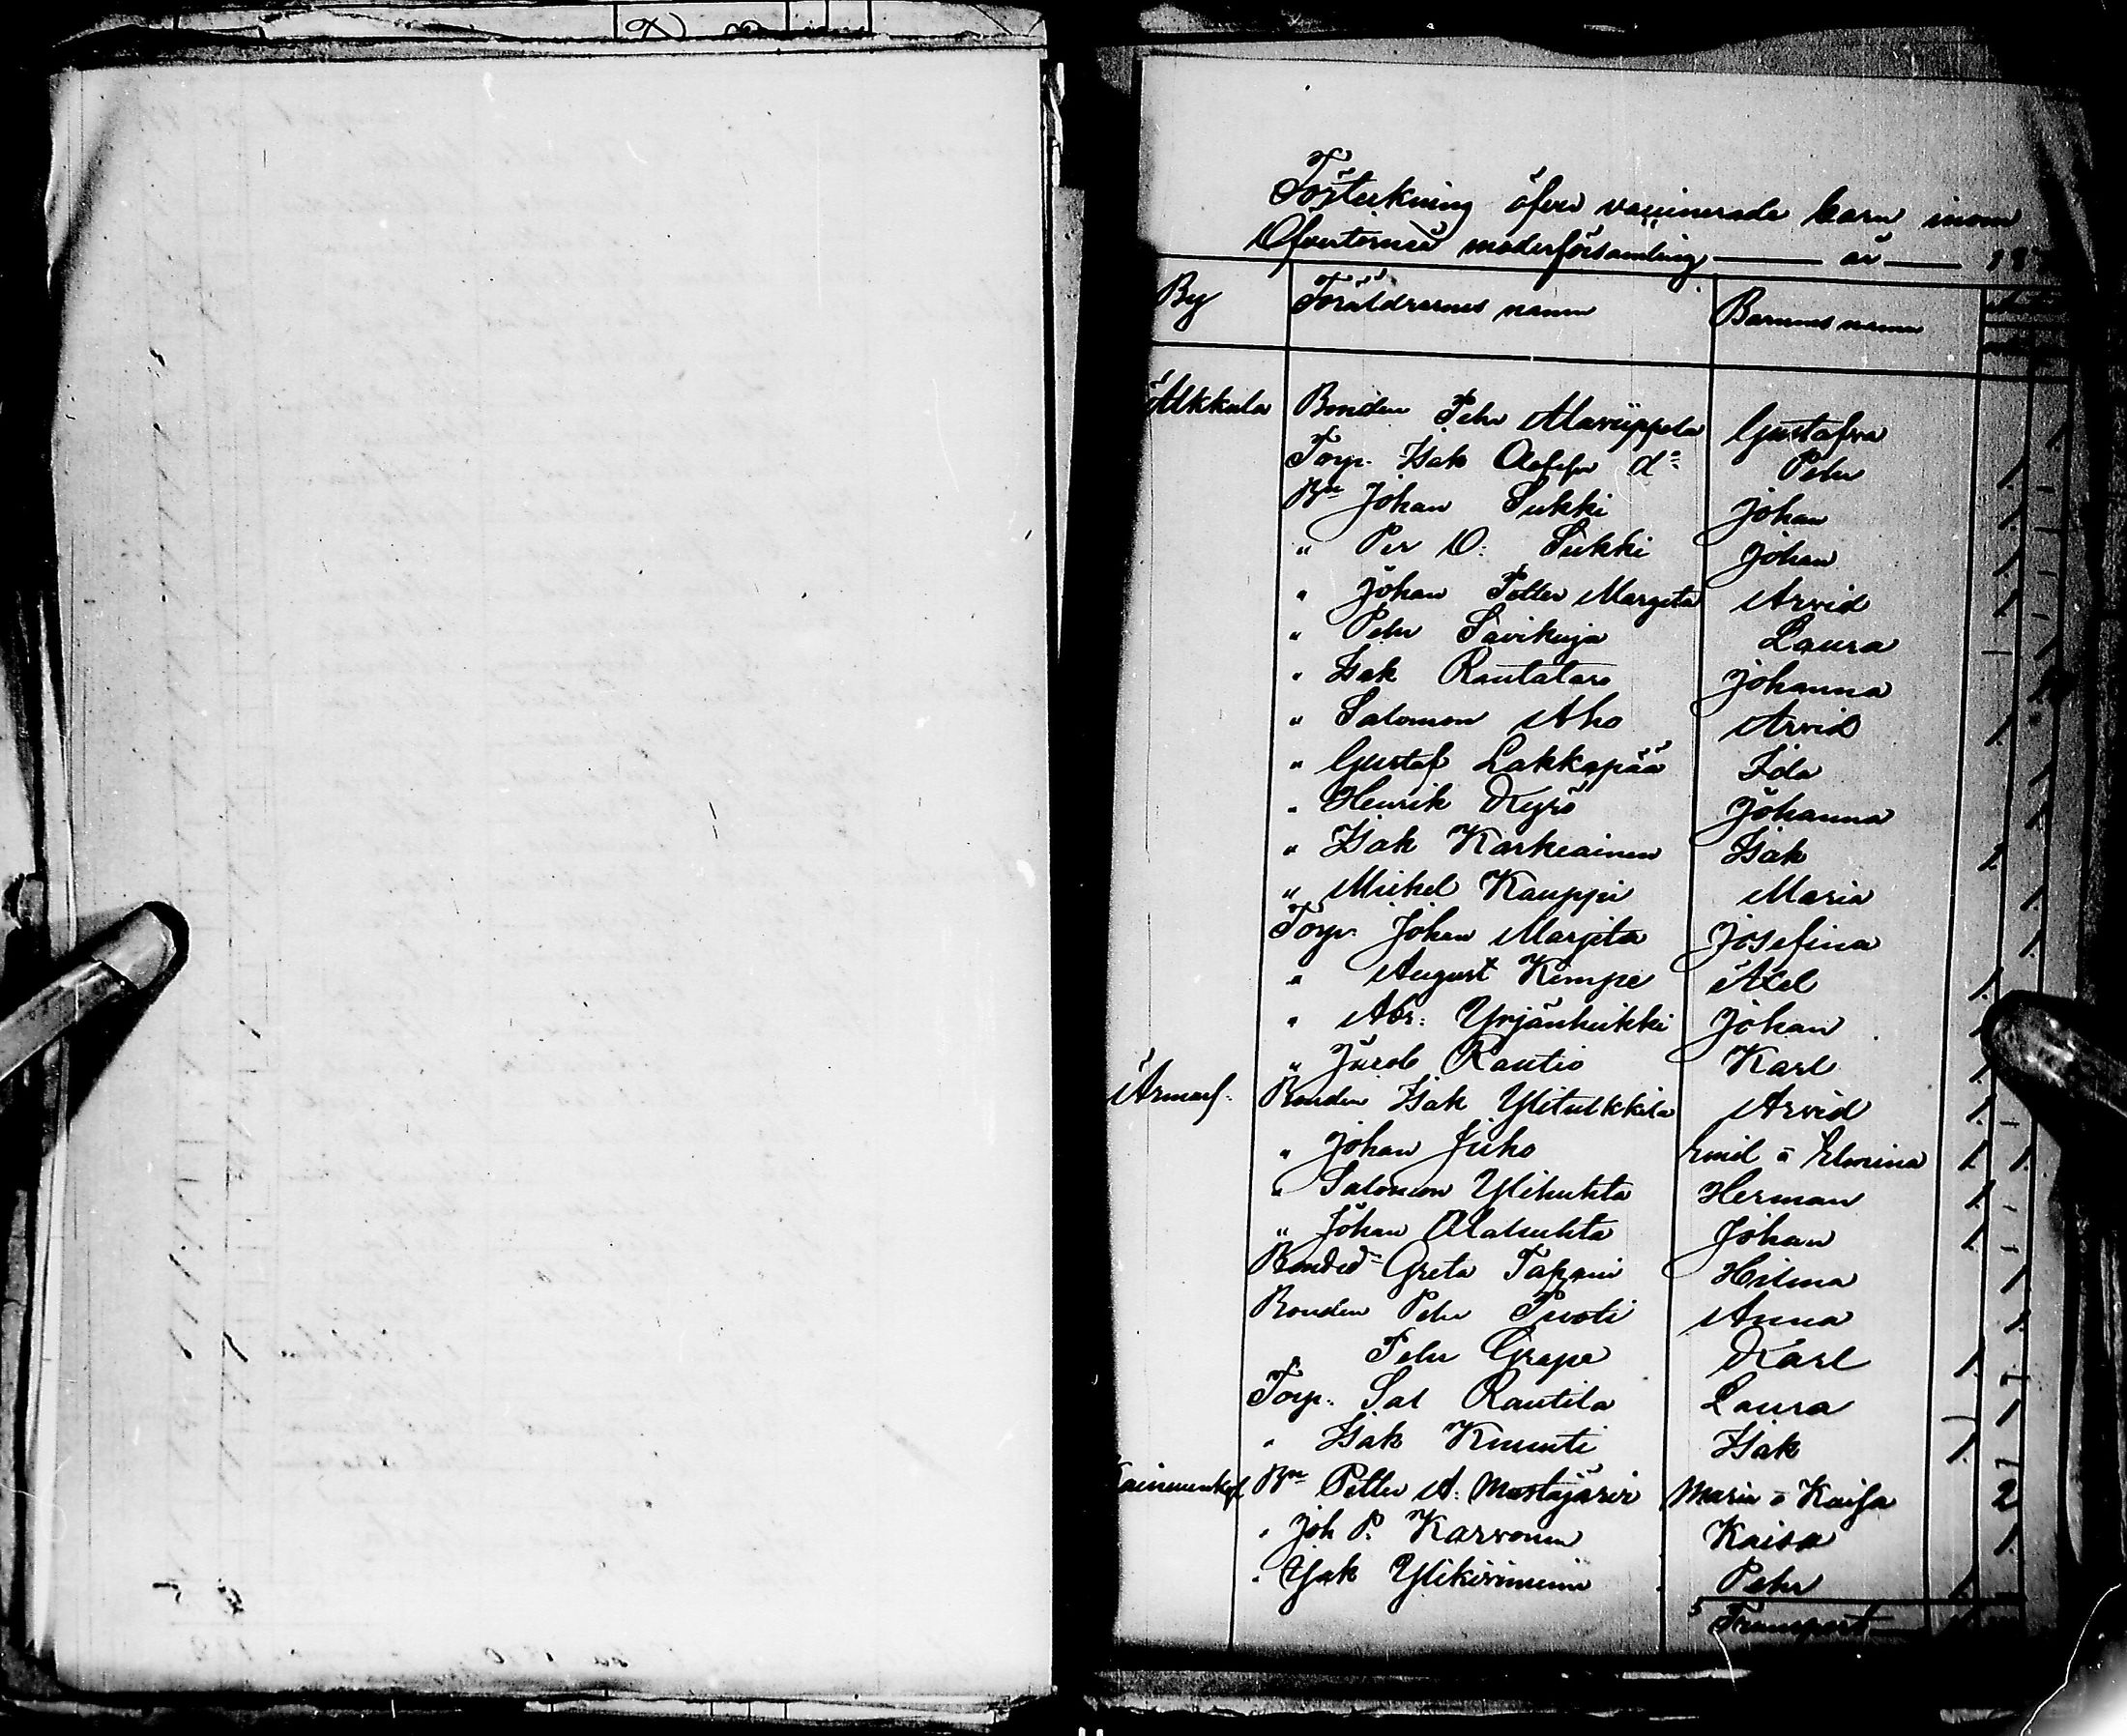 Förteckning öfver vaccinerade barn inom
Öfvertorneå moderförsamling — år — 187
By Föräldrarnes namn Barnens namn
Alkkula Bonden Pehr Alaruippola Gustafva 1
Torp. Isak Adolf do Pehr 1. -
Bn Johan Sukki Johan 1. -
" Per O: Sukki Johan 1. -
" Johan Petter Margeta Arvid 1 -
" Pehr Savikuja Laura - 1
" Isak Rautatars Johanna 1
" Salomon Aho Arvid 1.
" Gustaf Lakkapää Ida 1
" Henrik Kyrö Johanna 1.
" Isak Karkiainen Isak 1.
" Mickel Kauppi Maria 1.
Torp. Johan Marjeta Josefina 1.
" August Kempe Axel 1.
" Abr: Yrjänheikki Johan 1
" Jacob Rautio Karl 1.
Armas. Bonden Isak Ylitulkkila Arvid 1. -
" Johan Juho Emil o Elmina 1. 1.
" Salomon Ylikuhta Herman 1. -
" Johan Alakuhta Johan 1. -
Bonded. Greta Tapani Hilma 1
Bonden Pehr Puoti Anna 1.
" Pehr Grape Karl 1. -
Torp. Sal Rautila Laura - 1
" Isak Kmunti Isak 1. -
Kainuunkyl Bn Petter A. Mustajärvi Maria o Kaisa 2
" Joh P. Karvonen Kaisa 1.
" Isak Ylikiviniemi Pehr 1.
Transport